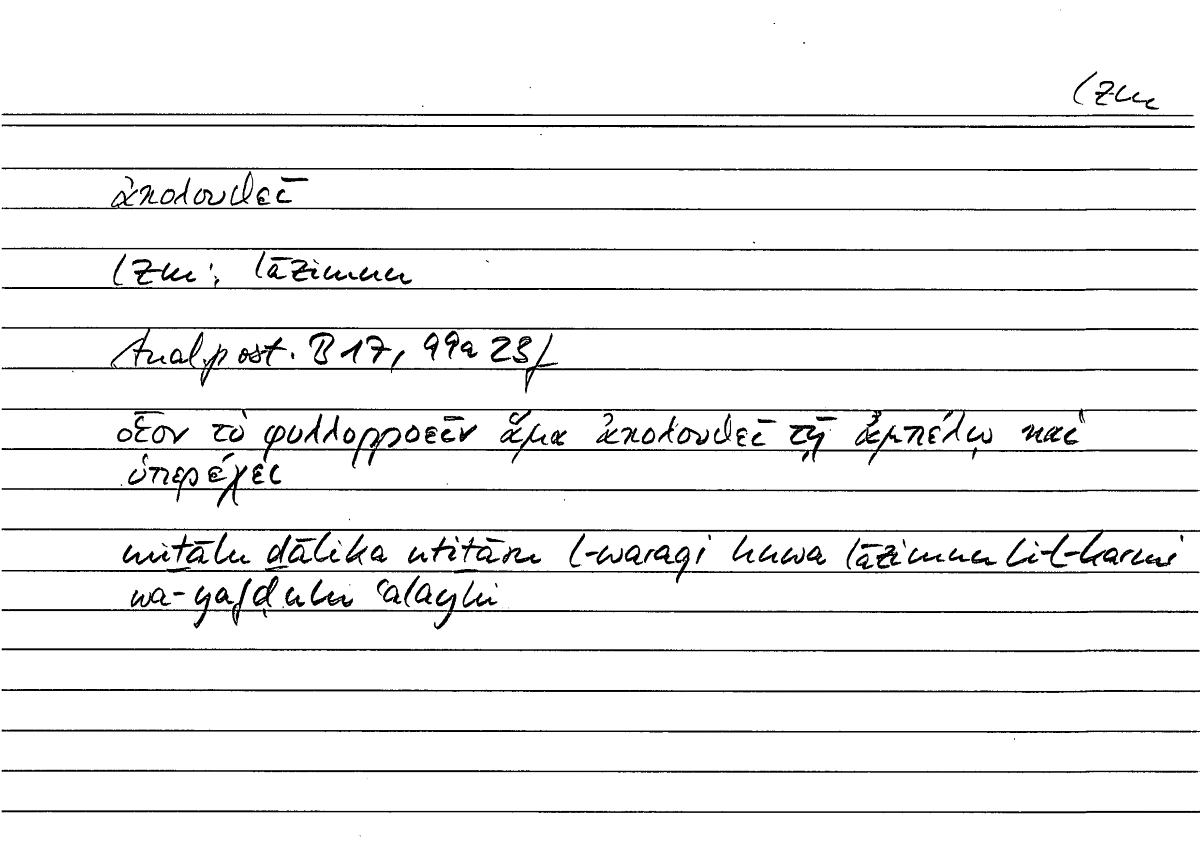 lzm
ἀκολουθεῖ
lzm; lāzimun
Anal. post. B 17, 99a 23f
οἷον τὸ φυλλορροεῖν ἅμα ἀκολουθεῖ τῇ ἀμπέλῳ καὶ
ὑπερέχει
miṯālu ḏālika ntiṯāru l-waraqi huwa lāzimun li-l-karmi
wa-yafḍulu ʿalayhi